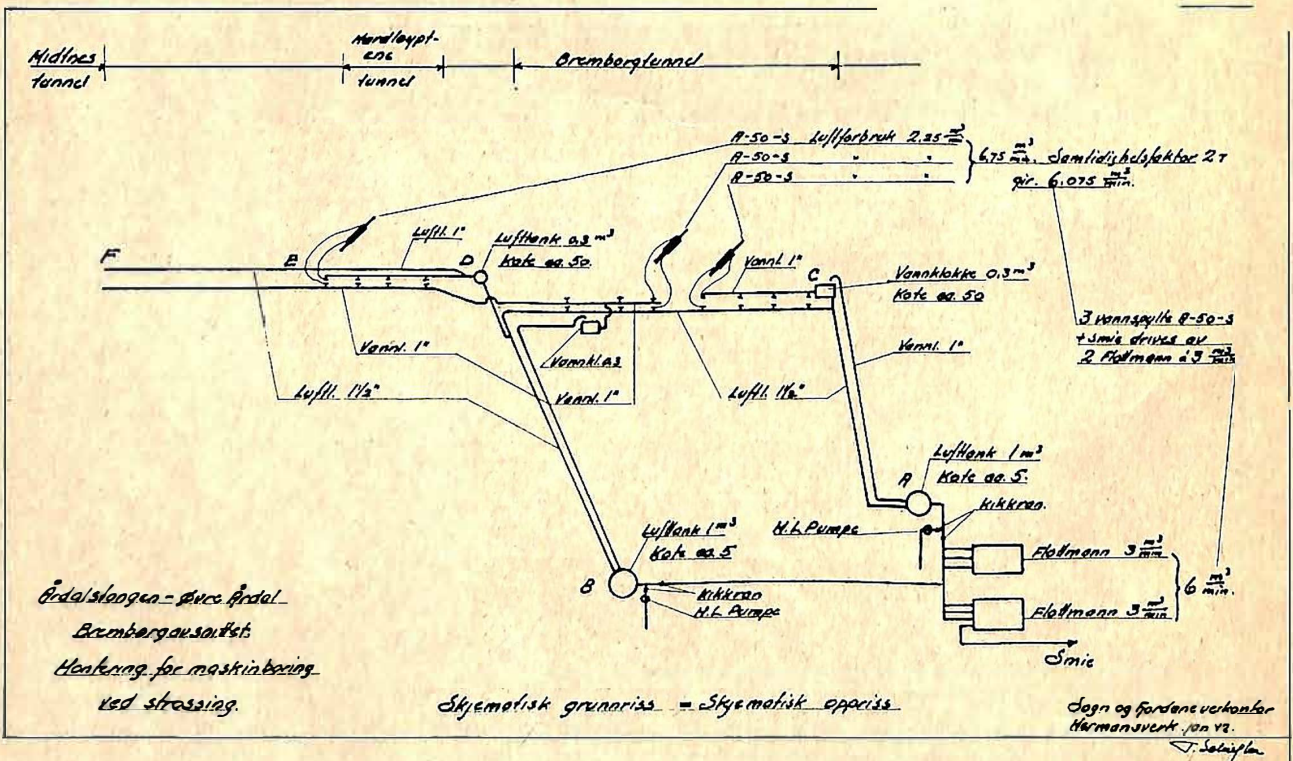 Midtnes
tunnel
Nordløypt-
ene
tunnel
Bremborgtunnel
R-50-S Luftforbruk 2.25 m³/m
R-50-S " "
R-50-S " "
6,75 m³/mn. Samtidighetsfaktor
gir. 6.075 m³/min.
F
E
Luftl. 1"
D
Lufttank 0,3 m³
Kote ca. 50.
Vannl. 1"
C
Vannklokke 0.3m³
Kote ca. 50
3 vannspylte R-50-S
+ smie drives av
2 Flottmann á 3 m³/min
Vannl. 1"
Vannkl. 0.3
Vannl. 1"
Luftl. 1½"
Vannl. 1"
Luftl. 1½"
Lufttank 1 m³
Kote ca. 5.
A
Kikkran.
H.L. Pumpe
Flottmann 3 m³/min
6 m³/min.
Flottmann 3 m³/min
Smie
Lufttank 1 m³
Kote ca. 5
B
Kikkran
H.L. Pumpe
Årdalstangen - Øvre Årdal
Bremborgavsnittet.
Montering for maskinboring
ved strossing.
Skjematisk grunnriss = Skjematisk oppriss
Sogn og Fjordane veikontor
Hermansverk. jan 42.